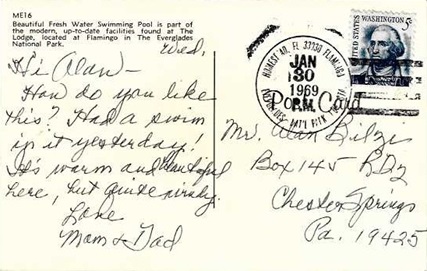 ME16
Beautiful Fresh Water Swimming Pool is part of
the modern, up-to-date facilities found at The
Lodge, located at Flamingo in The Everglades
National Park.
Wed.
Hi Alan—
How do you like
this? Had a swim
in it yesterday!
It's warm and beautiful
here, but quite windy.
Love
Mom & Dad
HOMESTEAD, FL 33030 FLAMINGO
JAN
30
1969
P.M.
Post Card
UNITED STATES
WASHINGTON
5c
Mr. Alan
Box 145 RD2
Chester Springs
Pa. 19425